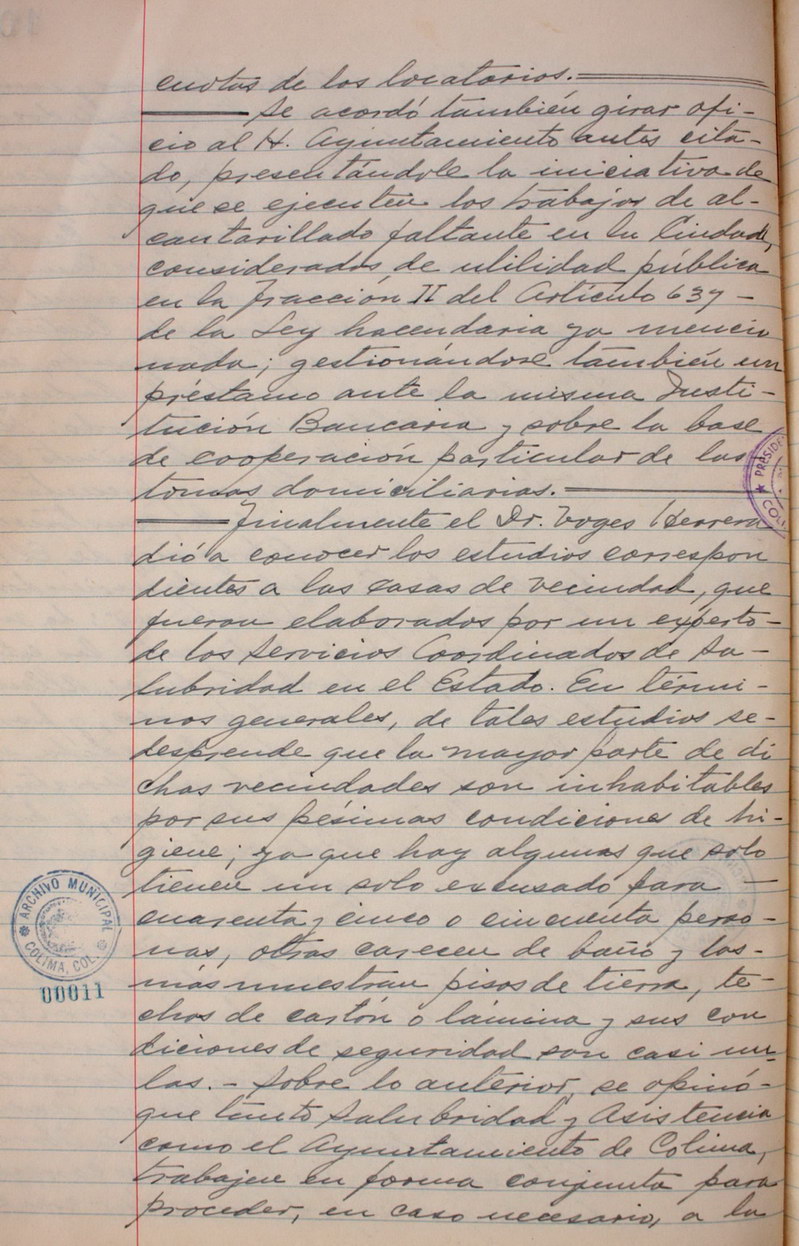 cuotas de los locatarios.
Se acordó también girar ofi-
cio al H. Ayuntamiento antes cita-
do, presentándole la iniciativa de
que se ejecuten los trabajos de al-
cantarillado faltante en la Ciudad,
considerados de utilidad pública
en la fracción II del Artículo 637-
de la Ley hacendaria ya mencio
nada; gestionándose también un
préstamo ante la misma Insti-
tución Bancaria y sobre la base
de cooperación particular de las
tomas domiciliarias.
Finalmente el Dr. Voges Herrera
dió a conocer los estudios correspon
dientes a las casas de vecindad, que
fueron elaborados por un experto-
de los Servicios Coordinados de Sa-
lubridad en el Estado. En térmi-
nos generales, de tales estudios se-
desprende que la mayor parte de di
chas vecindades son inhabitables
por sus pésimas condiciones de hi-
giene; ya que hay algunas que solo
tienen un solo excusado para
cuarenta y cinco o cincuenta perso-
nas, otras carecen de baño y las-
más muestran pisos de tierra, te-
chos de cartón o lámina y sus con
diciones de seguridad son casi nu-
las.- Sobre lo anterior, se opinó-
que tanto Salubridad y Asistencia
como el Ayuntamiento de Colima,
trabajen en forma conjunta para
proceder, en caso necesario, a la
ARCHIVO MUNICIPAL
COLIMA, COL.
00011